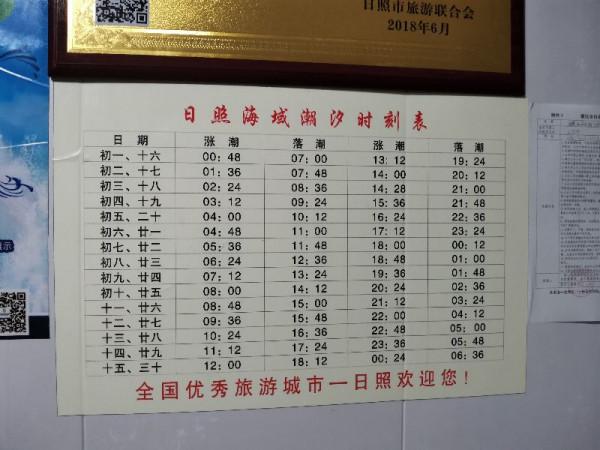 日照市旅游联合会
2018年6月
日照海域潮汐时刻表
日 期 涨 潮 落 潮 涨 潮 落 潮
初一、十六 00：48 07：00 13：12 19：24
初二、十七 01：36 07：48 14：00 20：12
初三、十八 02：24 08：36 14：28 21：00
初四、十九 03：12 09：24 15：36 21：48
初五、二十 04：00 10：12 16：24 22：36
初六、廿一 04：48 11：00 17：12 23：24
初七、廿二 05：36 11：48 18：00 00：12
初八、廿三 06：24 12：36 18：48 01：00
初九、廿四 07：12 13：24 19：36 01：48
初十、廿五 08：00 14：12 20：24 02：36
十一、廿六 08：48 15：00 21：12 03：24
十二、廿七 09：36 15：48 22：00 04：12
十三、廿八 10：24 16：36 22：48 05：00
十四、廿九 11：12 17：24 23：36 05：48
十五、三十 12：00 18：12 00：24 06：36
全国优秀旅游城市一日照欢迎您！